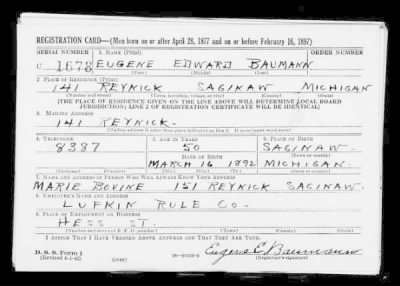 REGISTRATION CARD—(Men born on or after April 28, 1877 and on or before February 16, 1897)
SERIAL NUMBER 1. NAME (Print) ORDER NUMBER
U 1678 EUGENE EDWARD BAUMANN
(First) (Middle) (Last)
2. PLACE OF RESIDENCE (Print)
141 REYNICK SAGINAW MICHIGAN
(Number and street) (Town, township, village, or city) (County) (State)
[THE PLACE OF RESIDENCE GIVEN ON THE LINE ABOVE WILL DETERMINE LOCAL BOARD
JURISDICTION; LINE 2 OF REGISTRATION CERTIFICATE WILL BE IDENTICAL]
3. MAILING ADDRESS
141 REYNICK.
[Mailing address if other than place indicated on line 2. If same insert word same]
4. TELEPHONE 5. AGE IN YEARS 6. PLACE OF BIRTH
8387 50 SAGINAW
DATE OF BIRTH (Town or county)
MARCH 16 1892 MICHIGAN.
(Exchange) (Number) (Mo.) (Day) (Yr.) (State or country)
7. NAME AND ADDRESS OF PERSON WHO WILL ALWAYS KNOW YOUR ADDRESS
MARIE BOVINE 151 REYNICK SAGINAW.
8. EMPLOYER'S NAME AND ADDRESS
LUFKIN RULE CO.
9. PLACE OF EMPLOYMENT OR BUSINESS
HESS ST.
(Number and street or R. F. D. number) (Town) (County) (State)
I AFFIRM THAT I HAVE VERIFIED ABOVE ANSWERS AND THAT THEY ARE TRUE.
D. S. S. Form 1
(Revised 4-1-42) (over) Eugene E. Baumann
(Registrant's signature)